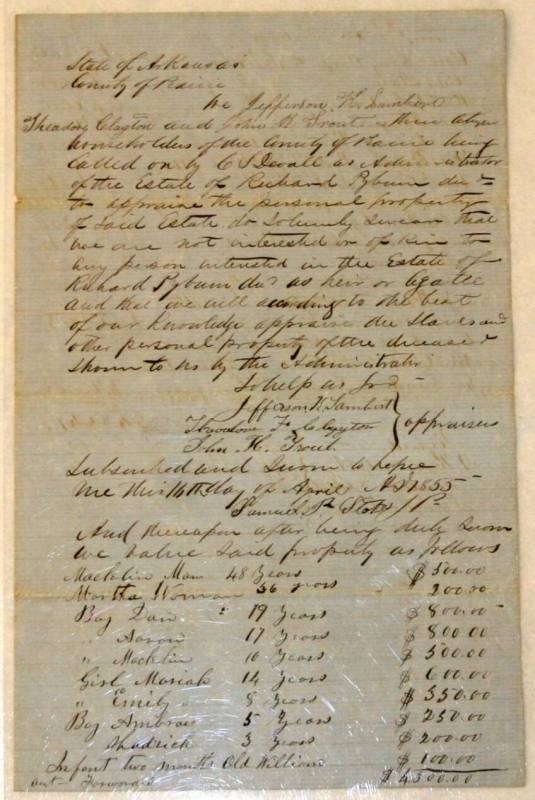 State of Arkansas
County of Prairie
We Jefferson K. Lambert
Theadore Clayton and John H. Trout three above
householders of the County of Prairie being
Called on by C S Devall as Administrator
of the Estate of Richard Pyburn decd
to appraise the personal property
of Said Estate do Solemnly Swear that
we are not interested or of kin to
any person interested in the Estate of
Richard Pyburn decd as heir or legatee
and that we will according to the best
of our knowledge appraise the Slaves and
other personal property of the deceased
Shown to us by the Administrator
So help us God
Jefferson K Lambert
Theadore F. Clayton
appraisers
John H. Trout
Subscribed and Sworn to before
me this 14th day of April AD 1855
Samuel J P
And thereupon after being duly Sworn
we value Said property as follows
Macklin Man 48 Years $ 500.00
Martha Woman 36 years 200.00
Boy Dan 19 Years $ 800.00
" Aaron 17 Years $ 800.00
" Macklin 10 Years $ 500.00
Girl Mariah 14 Years $ 600.00
" Emily 8 Years $ 350.00
Boy Ambrose 5 Years $ 250.00
Shadrick 3 Years $ 200.00
Infant two months Old William $ 100.00
amt Forward $ 4300.00